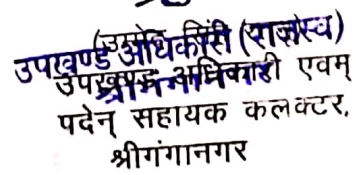 (उम्मेद सिंह)
उपखण्ड अधिकारी (राजस्व)
श्रीगंगानगर
उपखण्ड अधिकारी एवम्
पदेन् सहायक कलक्टर,
श्रीगंगानगर